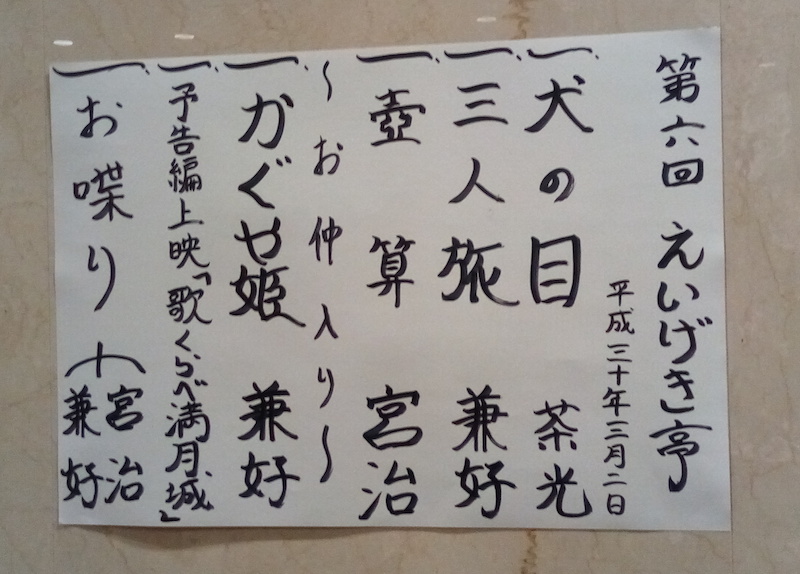 第六回 えいげき亭
平成三十年三月二日
一、犬の目 茶光
一、三人旅 兼好
一、壺算 宮治
〜お仲入り〜
一、かぐや姫 兼好
一、予告編上映「歌くらべ満月城」
一、お喋り 宮治
兼好